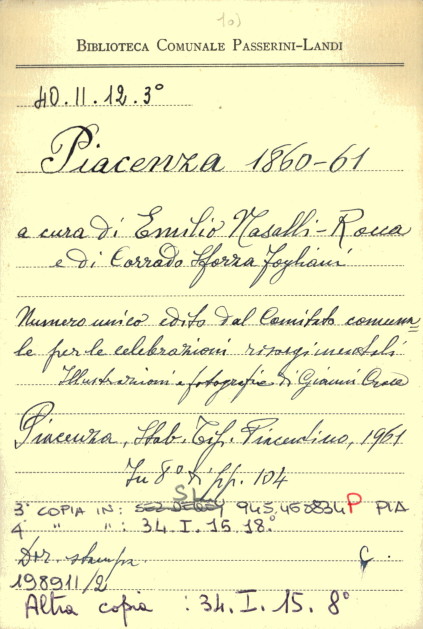 10)
BIBLIOTECA COMUNALE PASSERINI-LANDI
40.II.12.3°
Piacenza 1860-61
a cura di Emilio Nasalli-Rocca
e di Corrado Sforza Fogliani
Numero unico edito dal Comitato comuna=
le per le celebrazioni risorgimentali
Illustrazioni e fotografie di Gianni Croce
Piacenza, Stab. Tip. Piacentino, 1961
In 8° di pp. 104
SL
3ª COPIA IN: 945.450834 P PIA
4ª " " : 34.I.15.18°
Dir. stampa. C.
198911/2
Altra copia : 34.I.15.8°